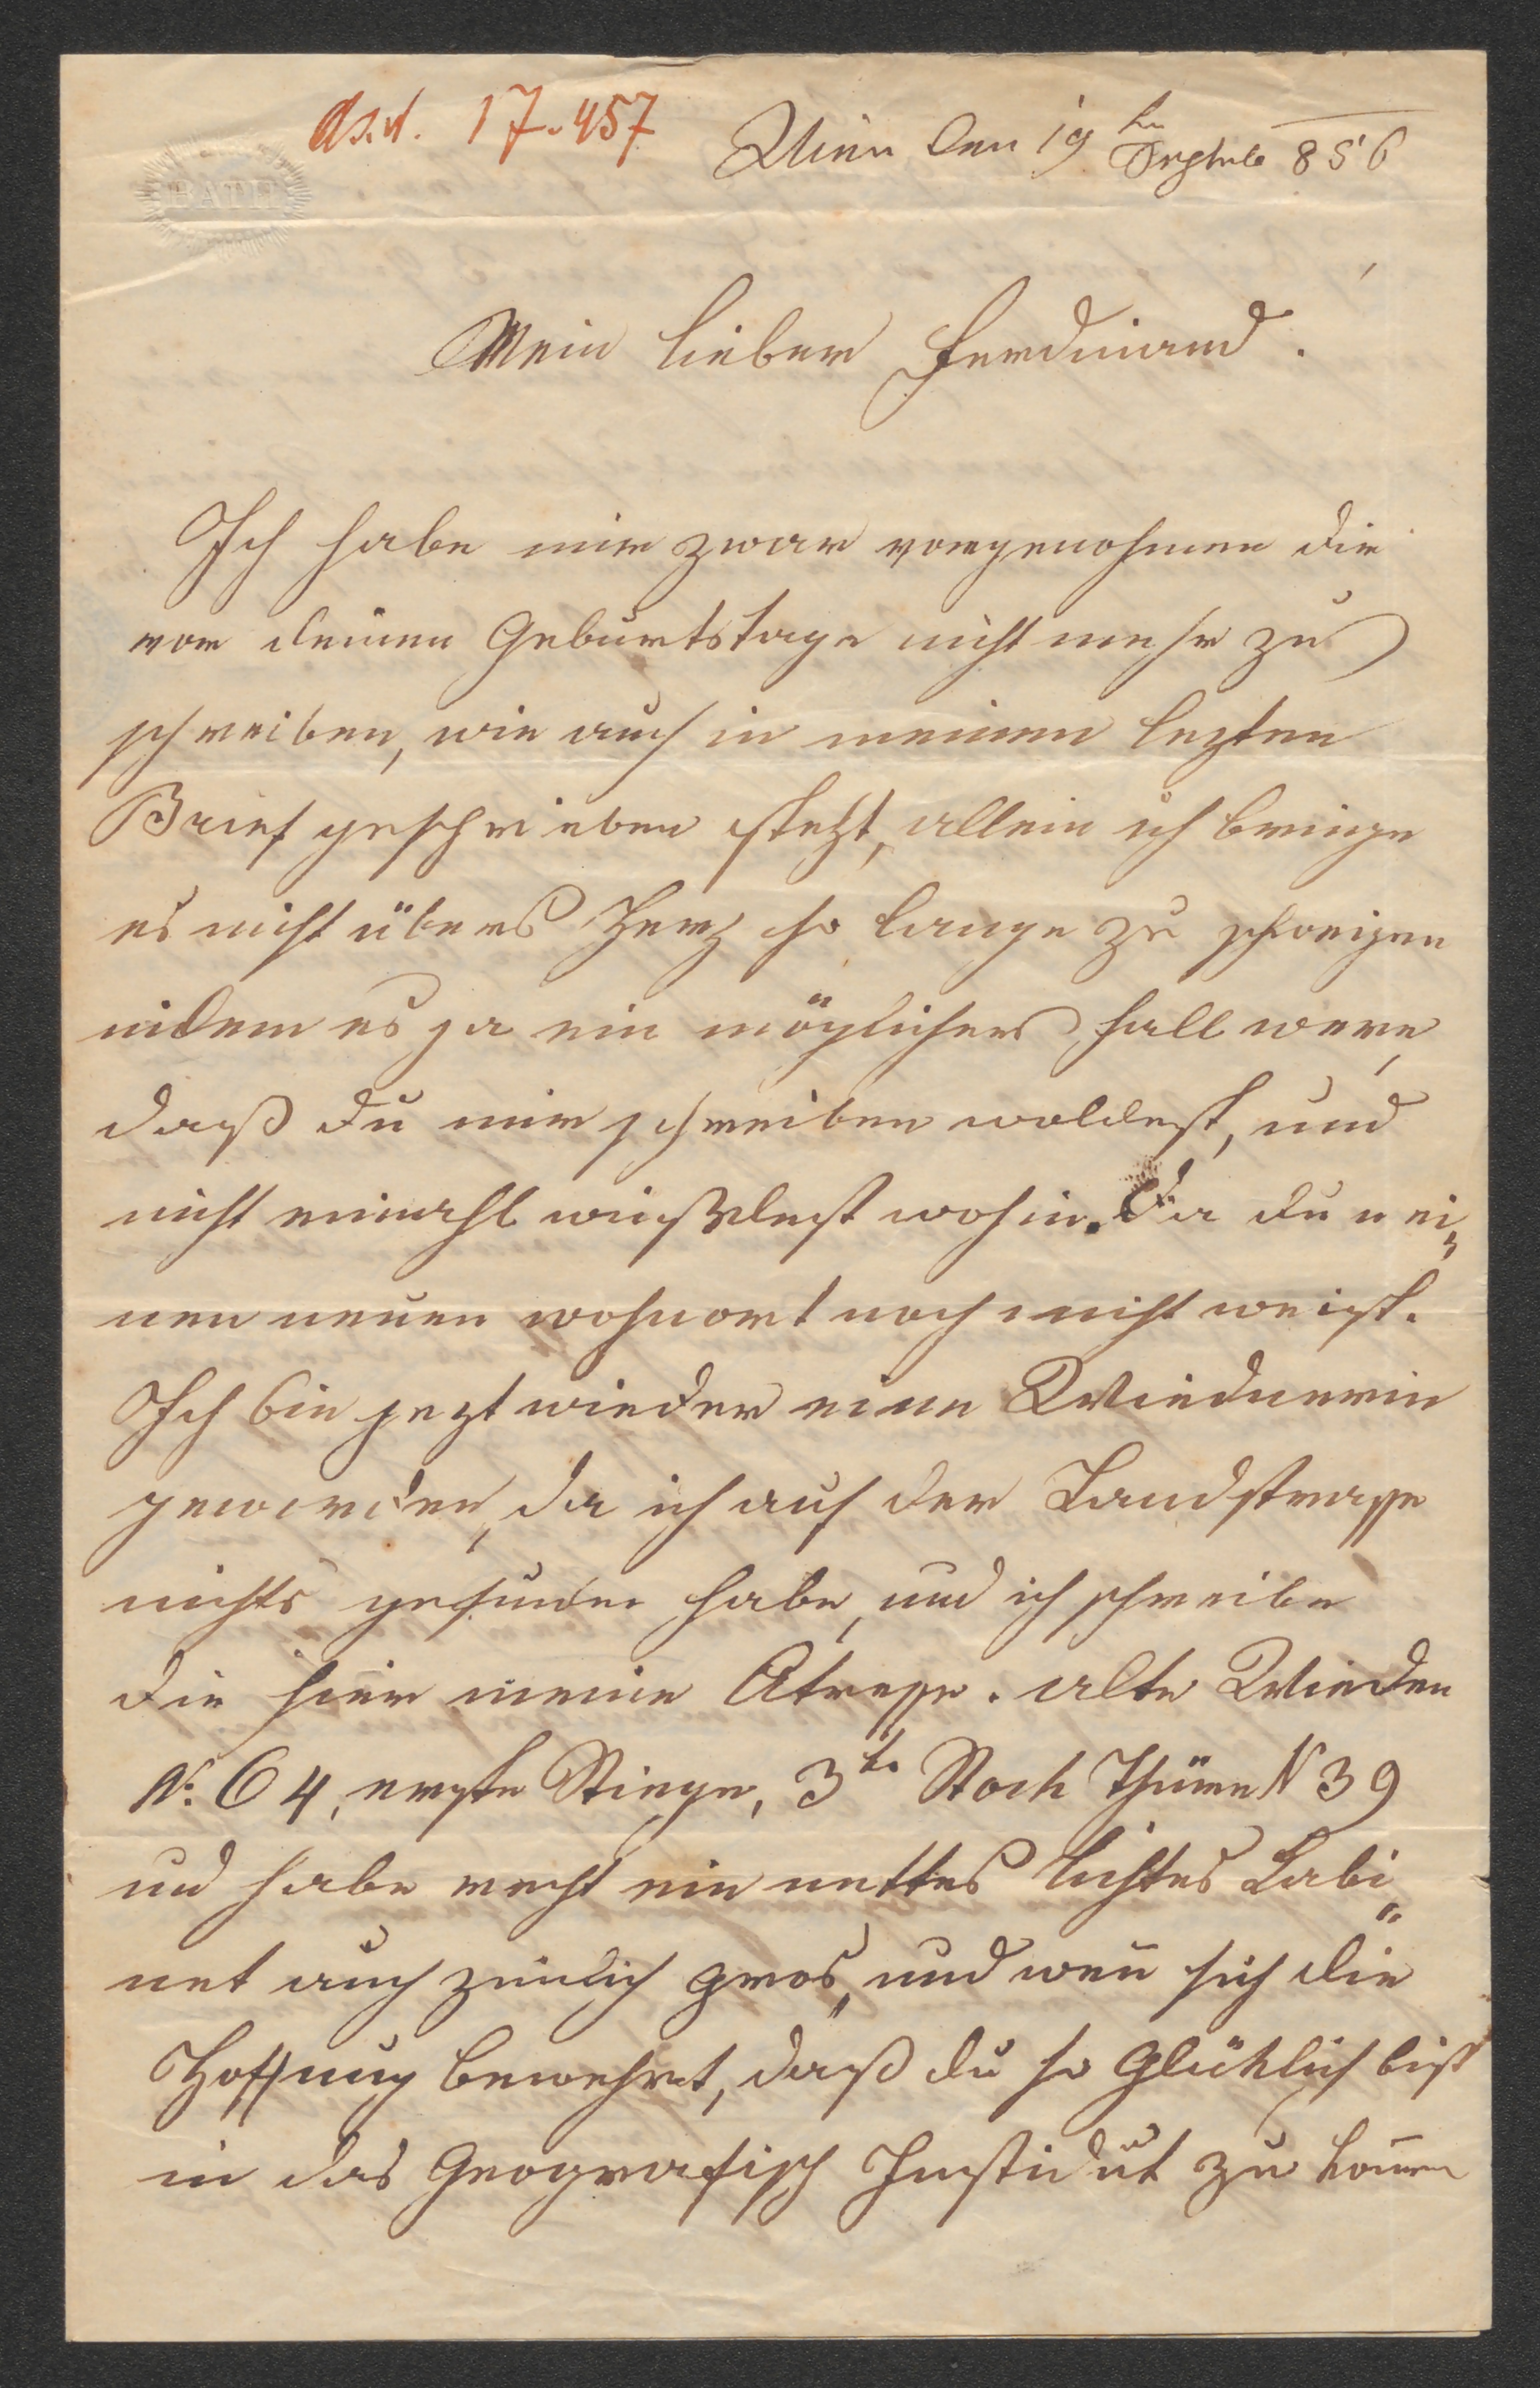 As. d. 17.457
Wien den 19ten Septembe 856
BATH
Mein lieber Ferdinand.
Ich habe mir zwar vorgenohmen dir
vor deinen Geburtstage nicht mehr zu
schreiben, wie auch in meinen lezten
Brief geschrieben steht, allein ich bringe
es nicht übers Herz so lange zu schweigen
indem es ja ein möglicher Fall were,
daß du mir schreiben woldest, und
nicht einmahl wußdest wohin. Da du mei„
nen neuen wohnort noch nicht weist.
Ich bin jezt wieder eine Wiednerin
geworden, da ich auf der Landstrasse
nichts gefunden habe, und ich schreibe
dir hier meine Atresse. alte Wieden
No. 64, erste Stiege, 3te Stock Thüre N 39
und habe recht ein nettes lichtes Cabi„
net auch zimlich gros, und wen̄ sich die
Hoffnung bewehret, daß du so Glüklich bist
in das Geografisch Institut zu kom̄en